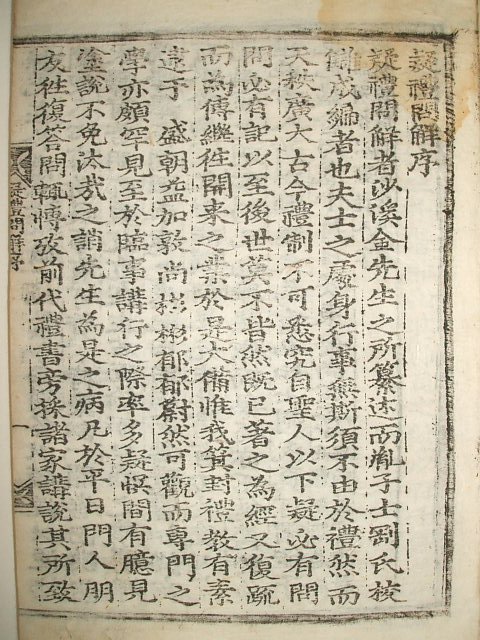 疑禮問解序
疑禮問解者沙溪金先生之所纂述而胤子士剛氏校
讎成編者也夫士之處身行事無斯須不由於禮然而
天秩廣大古今禮制不可悉究自聖人以下疑必有問
問必有記以至後世莫不皆然旣已著之為經又復疏
而為傳繼徃開来之業於是大備惟我箕封禮教有素
逮于 盛朝益加敦尚彬彬郁郁蔚然可觀而專門之
學亦頗罕見至於臨事講行之際率多疑悞間有臆見
塗說不免汰哉之誚先生為是之病凡於平日門人朋
友徃復答問輒愽攷前代禮書旁採諸家講說其所致
疑禮問解序